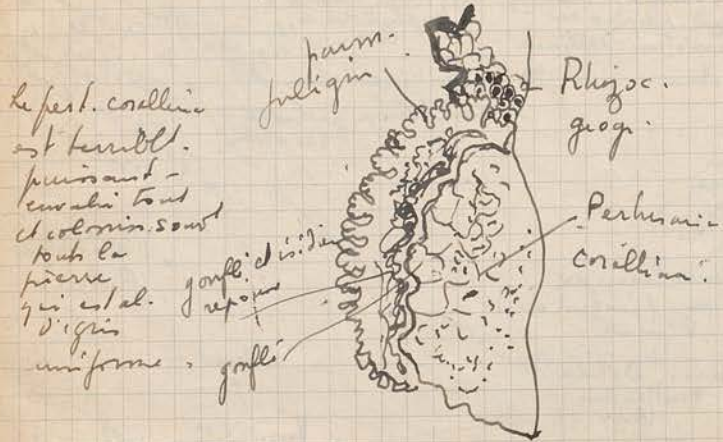 Le pert. corallina
est terriblt.
puissant -
envahi tout
et colonise souvt
toute la
pierre
qui est al.
d'gris
uniforme.
parm.
fuligin
Rhizoc.
geogr.
Pertusaria
corallina.
gonflé et isidié
gonflé